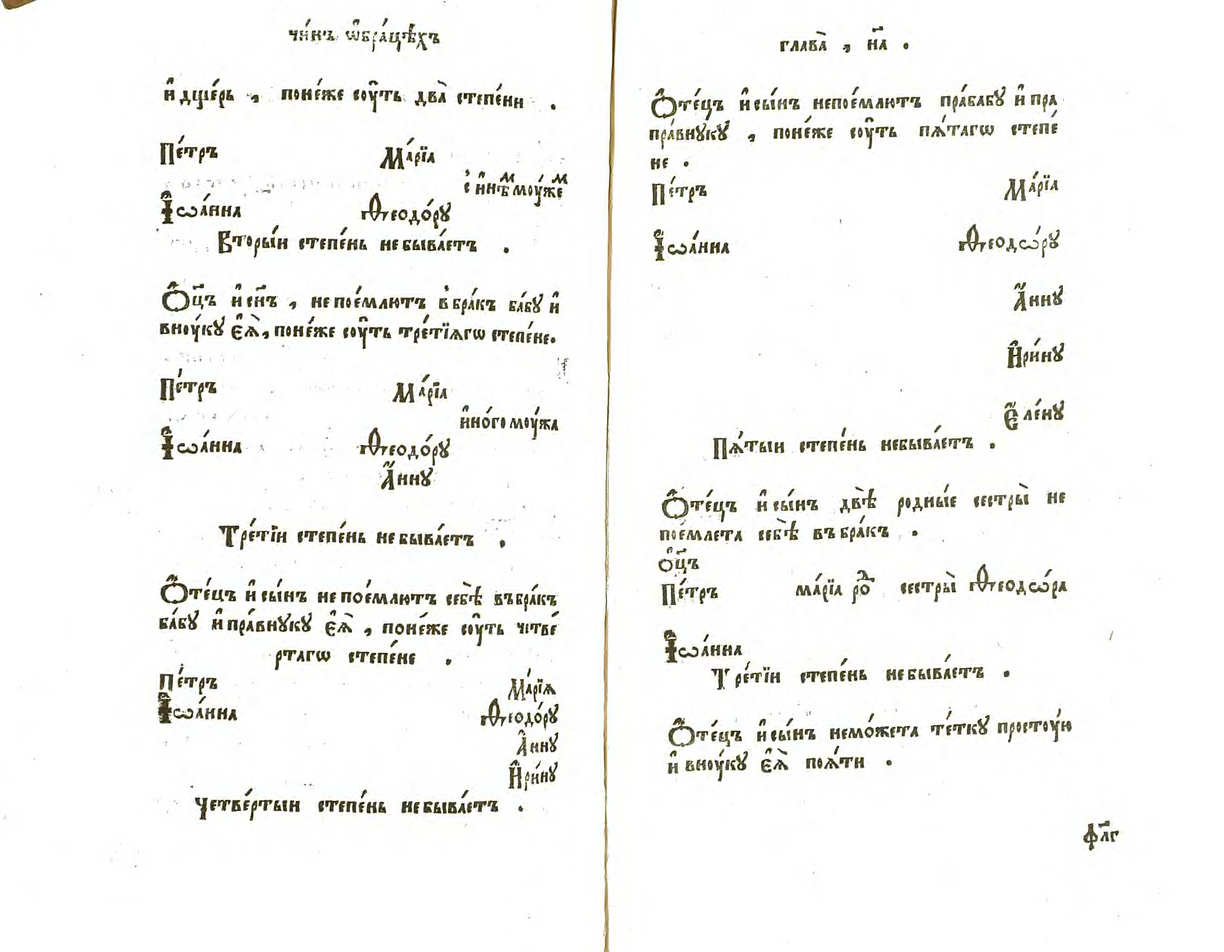 чи́нъ ѡ҆бра́цѣхъ
и҆ дще́рь , поне́же сꙋ́ть два̀ степе́ни .
Пе́тръ Ма́рїа
с̾ и҆нѣ́мъ мꙋ́жемъ
І҆ѡа́нна Ѳео́до́рꙋ
Вторы́й степе́нь небыва́етъ .
Ѻ҆ц҃ъ и҆ сн҃ъ , непое́млютъ в̾бра́къ ба́бꙋ и҆
внꙋ́кꙋ є҆ѧ̀ , поне́же сꙋ́ть тре́тїѧгѡ степе́не .
Пе́тръ Ма́рїа
и҆но́го мꙋ́жа
І҆ѡа́нна Ѳеодо́рꙋ
А҆́ннꙋ
Тре́тїй степе́нь небыва́етъ .
Ѻ҆те́цъ и҆ сы́нъ непое́млютъ себѣ̀ въбра́къ
ба́бꙋ и҆ пра́внꙋкꙋ є҆ѧ̀ , поне́же сꙋ́ть четве́
ртагѡ степе́не .
Пе́тръ Ма́рїѧ
І҆ѡа́нна Ѳеодо́рꙋ
А҆́ннꙋ
И҆ри́нꙋ
Четве́ртый степе́нь небыва́етъ .
глава̀ , н҃а .
Ѻ҆те́цъ и҆ сы́нъ непое́млютъ пра́бабꙋ и҆ пра
пра́внꙋкꙋ , поне́же сꙋ́ть пѧ́тагѡ степе́
не .
Пе́тръ Ма́рїа
І҆ѡа́нна Ѳеодѡ́рꙋ
А҆́ннꙋ
И҆ри́нꙋ
Є҆ле́нꙋ
Пѧ́тый степе́нь небыва́етъ .
Ѻ҆те́цъ и҆ сы́нъ двѣ̀ родны́е сестры̀ не
пое́млета себѣ̀ въ бра́къ .
ѻ҆ц҃ъ
Пе́тръ ма́рїа роⷣ сестры̀ Ѳеодѡ́ра
І҆ѡа́нна
Тре́тїй степе́нь небыва́етъ .
Ѻ҆те́цъ и҆ сы́нъ немо́жета те́ткꙋ просту́ю
и҆ внꙋ́кꙋ є҆ѧ̀ поѧ́ти .
ф҃лг